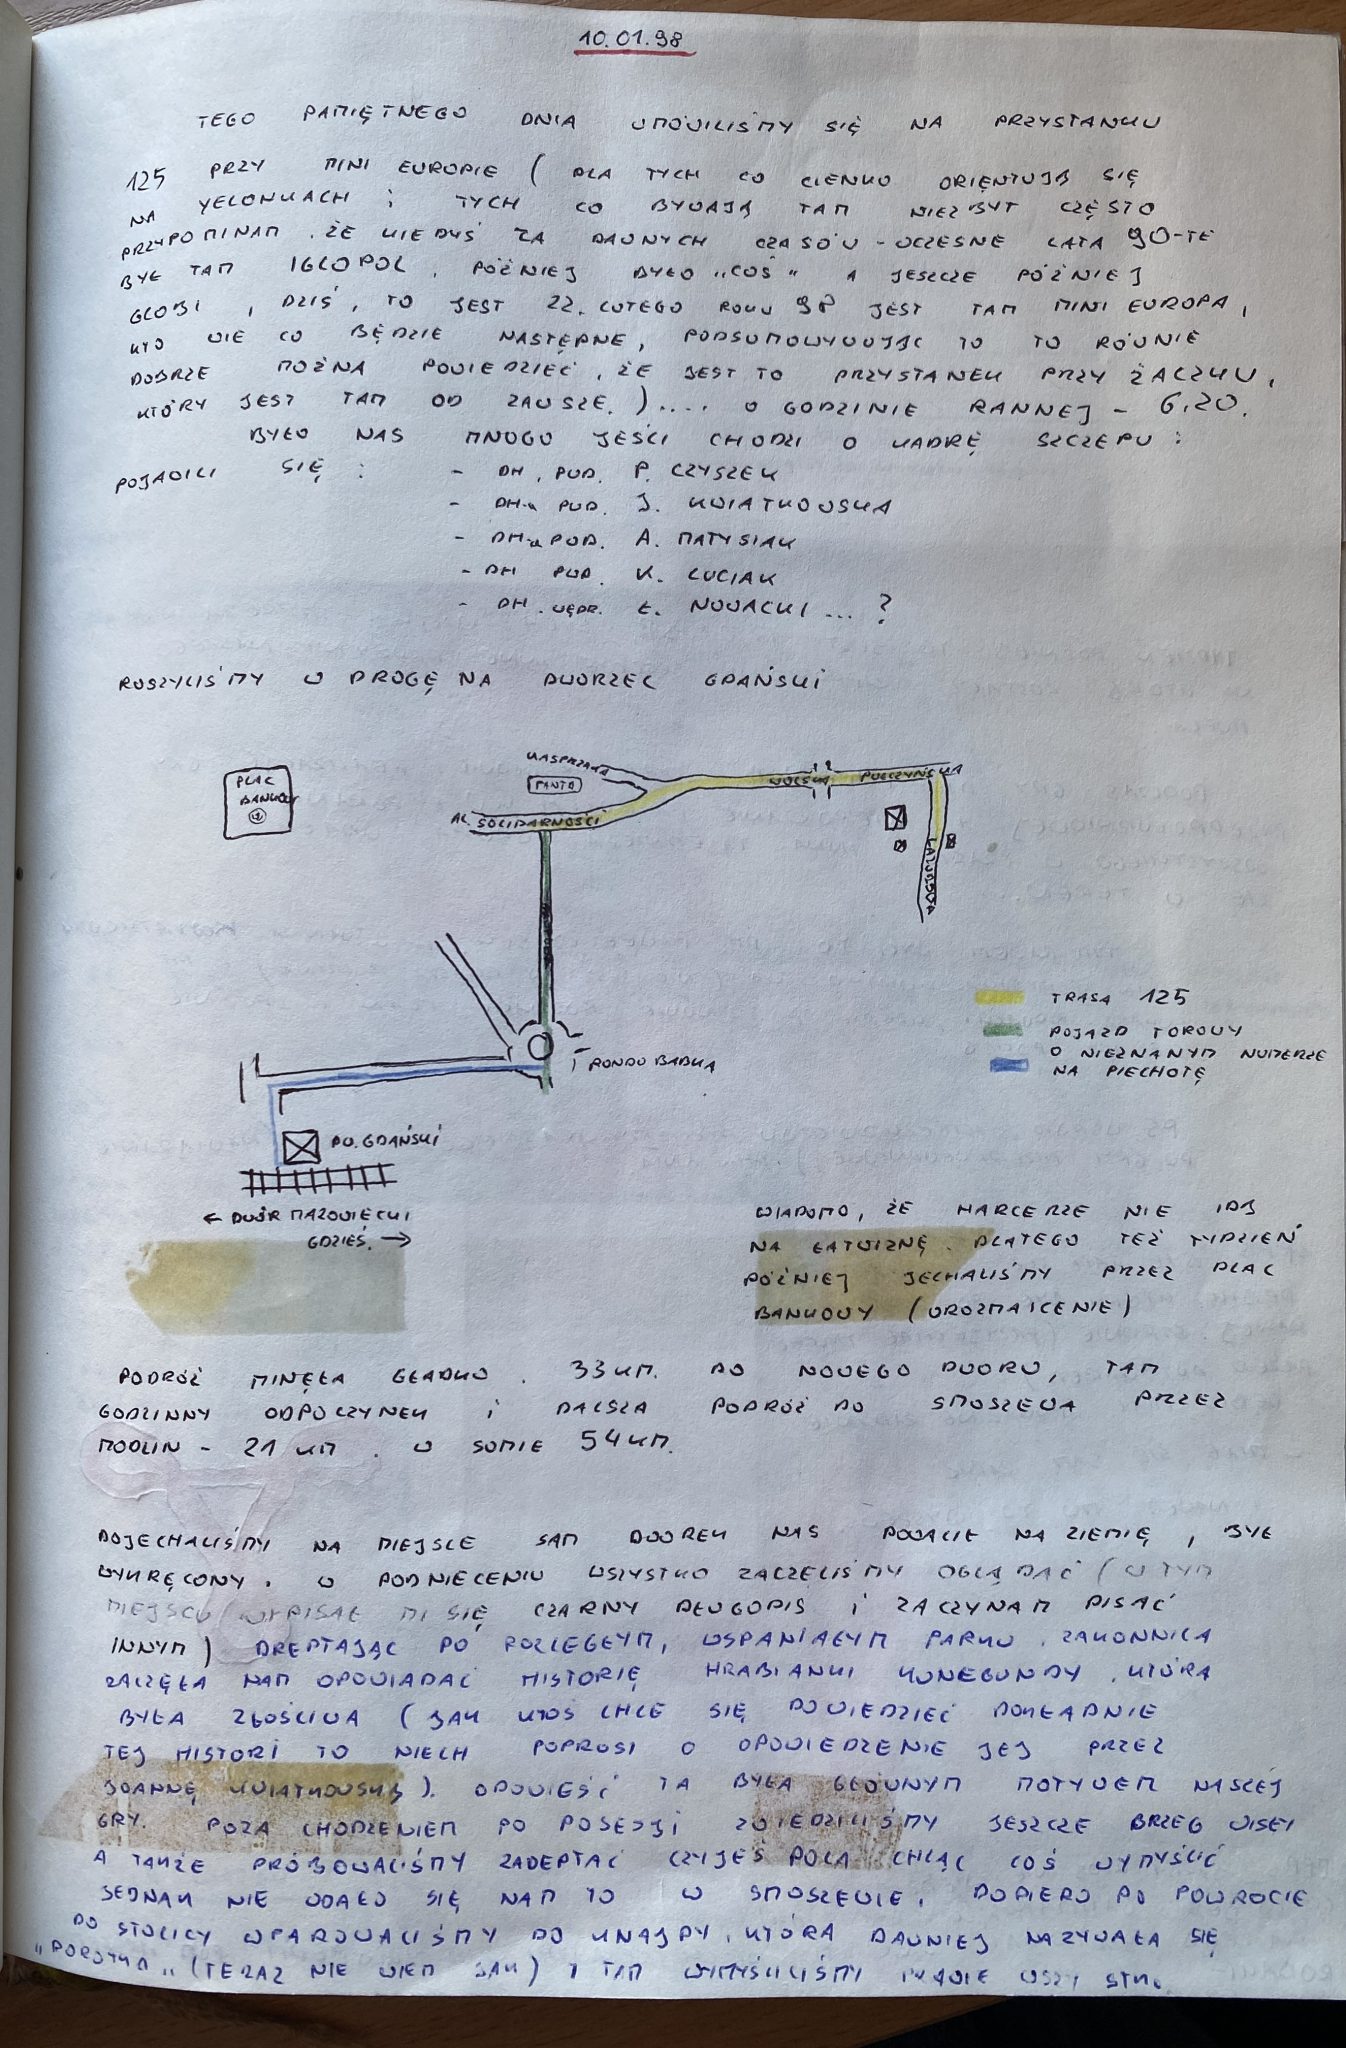 10.01.98
TEGO PAMIĘTNEGO DNIA UMÓWILIŚMY SIĘ NA PRZYSTANKU
125 PRZY MINI EUROPIE ( DLA TYCH CO CIENKO ORIĘNTUJĄ SIĘ
NA YELONKACH i TYCH CO BYWAJĄ TAM NIEZBYT CZĘSTO
PRZYPOMINAM . ŻE KIEDYŚ ZA DAWNYCH CZASÓW - WCZESNE LATA 90-TE
BYŁ TAM IGLOPOL , PÓŹNIEJ BYŁO „COŚ" A JESZCZE PÓŹNIEJ
GLOBI , DZIŚ , TO JEST 22. LUTEGO ROKU 98 JEST TAM MINI EUROPA,
KTO WIE CO BĘDZIE NASTĘPNE, PODSUMOWYWUJĄC TO TO RÓWNIE
DOBRZE MOŻNA POWIEDZIEĆ , ŻE JEST TO PRZYSTANEK PRZY ŻACZKU ,
KTÓRY JEST TAM OD ZAWSZE. ) .... O GODZINIE RANNEJ - 6.20.
BYŁO NAS MNOGO JEŚCI CHODZI O KADRĘ SZCZEPU :
POJAWILI SIĘ : - DH . PWD. P. CZYSZEK
- DH-a PWD. J. KWIATKOWSKA
- DH-a PWD. A. MATYSIAK
- DH PWD . K. LUCIAK
- DH . WĘDR. Ł. NOWACKI ... ?
RUSZYLIŚMY W DROGĘ NA DWORZEC GDAŃSKI
KASPRZAKA
PLAC
BANKOWY
FANTA
WOLSKA POŁCZYŃSKA
AL. SOLIDARNOŚCI
LAZUROWA
TRASA 125
POJAZD TOROWY
O NIEZNANYM NUMERZE
NA PIECHOTĘ
RONDO BABKA
DW. GDAŃSKI
← DWÓR MAZOWIECKI
GDZIEŚ. →
WIADOMO, ŻE HARCERZE NIE IDĄ
NA ŁATWIZNĘ . DLATEGO TEŻ TYDZIEŃ
PÓŹNIEJ JECHALIŚMY PRZEZ PLAC
BANKOWY (UROZMAICENIE)
PODRÓŻ MINĘŁA GŁADKO . 33 KM. DO NOWEGO DWORU, TAM
GODZINNY ODPOCZYNEK I DALSZA PODRÓŻ DO SMOSZEWA PRZEZ
MODLIN - 21 KM . W SOMIE 54 KM.
DOJECHALIŚMY NA MIEJSCE SAM DWOREK NAS POWALIŁ NA ZIEMIĘ , BYŁ
WYKRĘCONY . W PODNIECENIU WSZYSTKO ZACZĘLIŚMY OGLĄDAĆ ( W TYM
MIEJSCU WYPISAŁ MI SIĘ CZARNY DŁUGOPIS I ZACZYNAM PISAĆ
INNYM) DREPTAJĄC PO ROZLEGŁYM, WSPANIAŁYM PARKU . ZAKONNICA
ZACZĘŁA NAM OPOWIADAĆ HISTORIĘ HRABIANKI KUNEGUNDY . KTÓRA
BYŁA ZŁOŚLIWA ( JAK KTOŚ CHCE SIĘ DOWIEDZIEĆ DOKŁADNIE
TEJ HISTORI TO NIECH POPROSI O OPOWIEDZENIE JEJ PRZEZ
JOANNĘ KWIATKOWSKĄ ). OPOWIEŚĆ TA BYŁA GŁÓWNYM MOTYWEM NASZEJ
GRY. POZA CHODZENIEM PO POSESJI ZWIEDZILIŚMY JESZCZE BRZEG WISŁY
A TAKŻE PRÓBOWALIŚMY ZADEPTAĆ CZYJEŚ POLA CHCĄC COŚ WYMYŚLIĆ
JEDNAK NIE UDAŁO SIĘ NAM TO W SMOSZEWIE . DOPIERO PO POWROCIE
DO STOLICY WPAROWALIŚMY DO KNAJPY . KTÓRA DAWNIEJ NAZYWAŁA SIĘ
(TERAZ NIE WIEM JAK) I TAM WYMYŚLILIŚMY PRAWIE WSZYSTKO